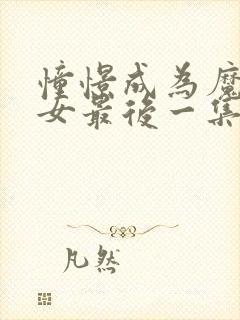 憧憬成為魔
女最後一集
凡然